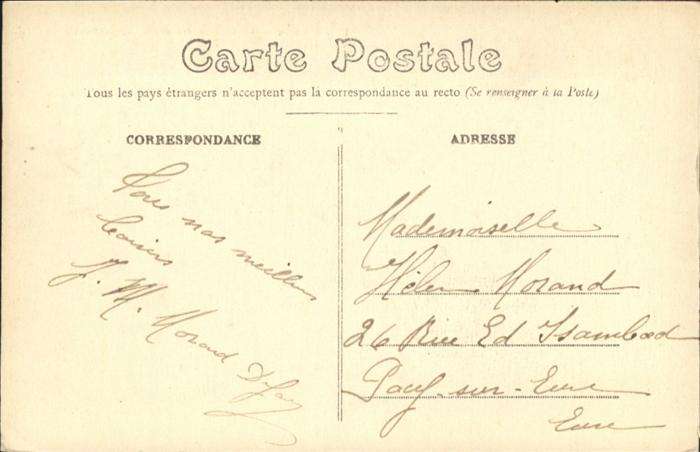 Carte Postale
Tous les pays étrangers n'acceptent pas la correspondance au recto (Se renseigner à la Poste)
CORRESPONDANCE
Tous nos meilleurs
baisers
J. M. Morand
ADRESSE
Mademoiselle
Hélen Morand
26 Rue Ed Isambard
Pacy-sur-Eure
Eure